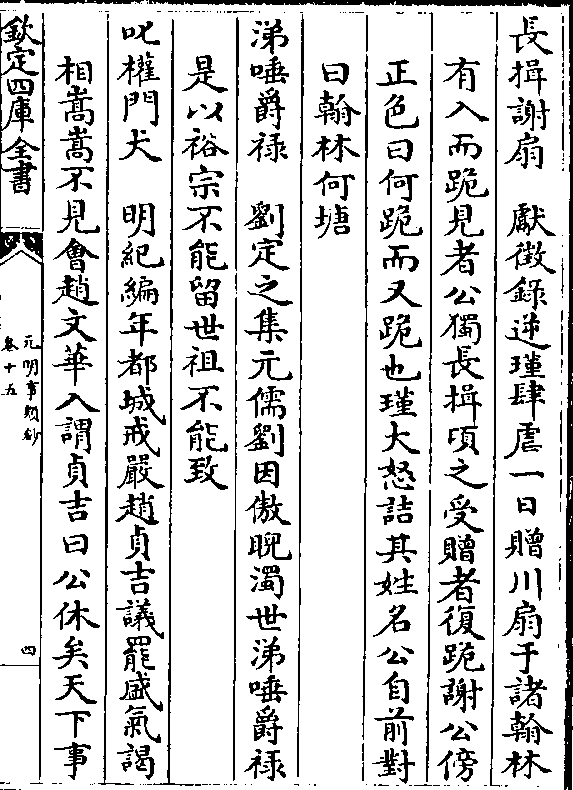 長揖謝扇　獻徵錄逆瑾肆虐一日贈川扇于諸翰林
有入而跪見者公獨長揖頃之受贈者復跪謝公傍
正色曰何跪而又跪也瑾大怒詰其姓名公自前對
曰翰林何塘
涕唾爵祿　劉定之集元儒劉因傲睨濁世涕唾爵祿
是以裕宗不能留世祖不能致
叱權門犬　明紀編年都城戒嚴趙貞吉議罷盛氣謁
相嵩嵩不見會趙文華入謂貞吉曰公休矣天下事
欽定四庫全書
元明事類鈔
卷十五
四